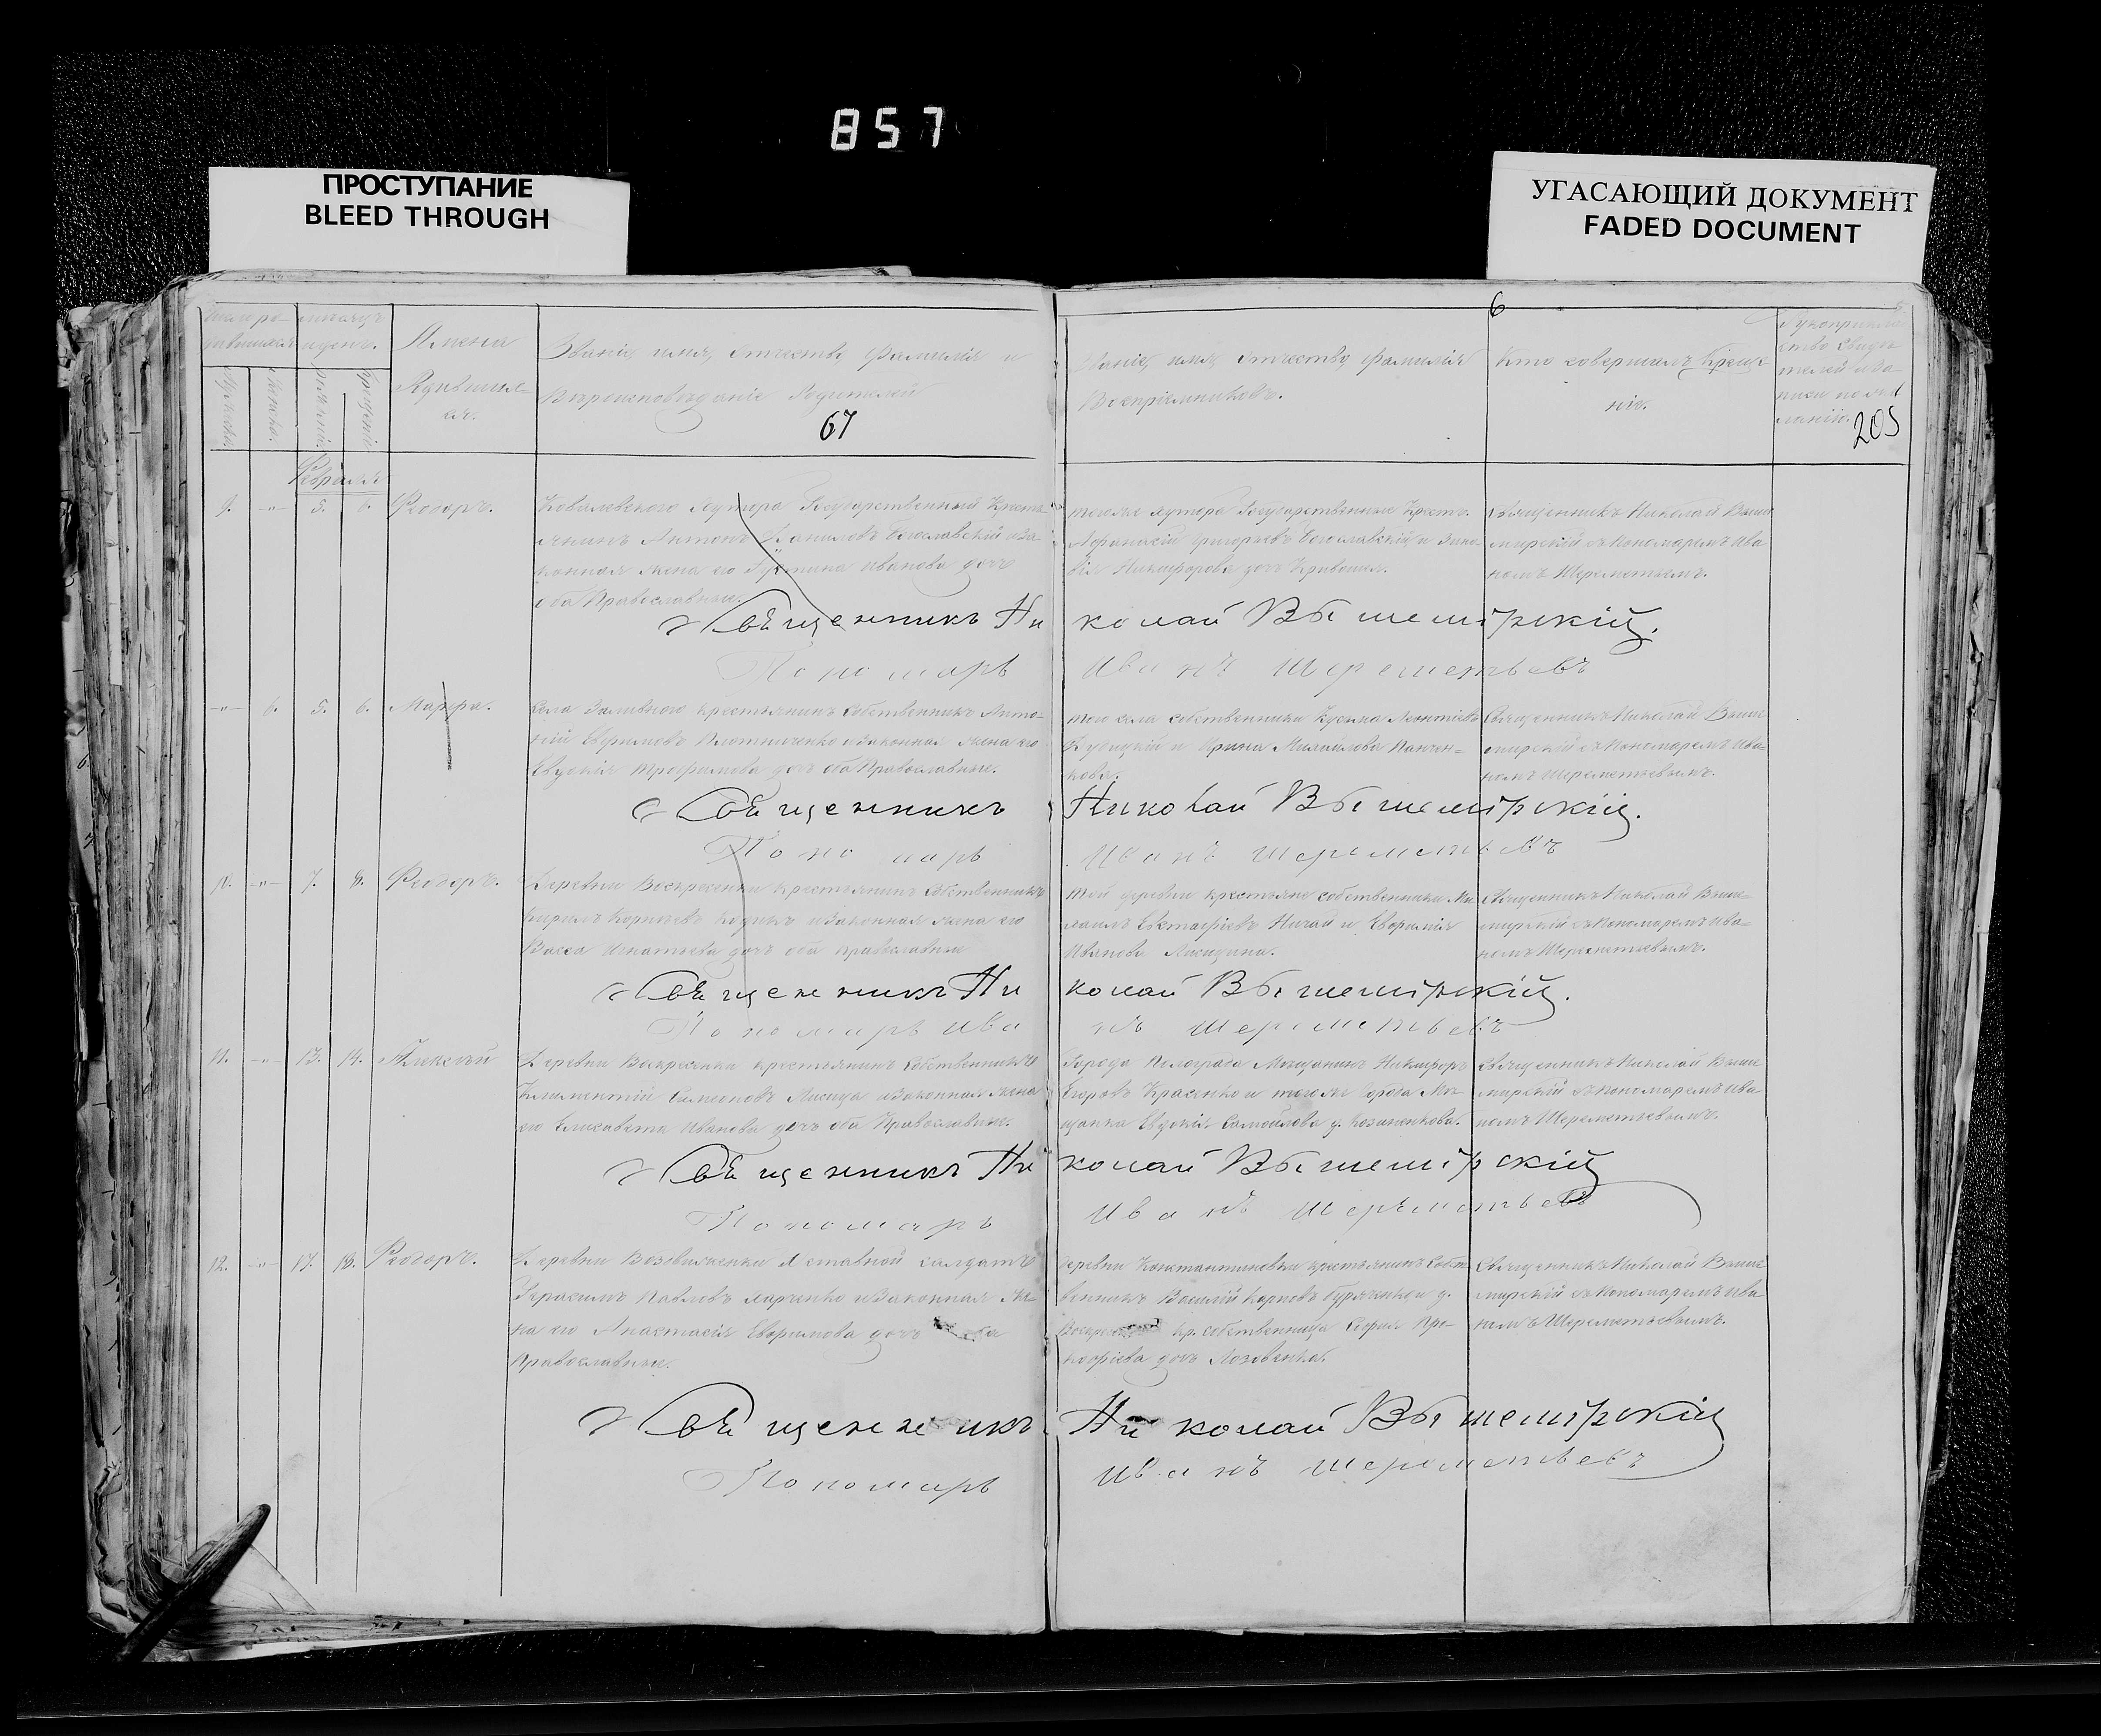 857
ПРОСТУПАНИЕ
BLEED THROUGH
УГАСАЮЩИЙ ДОКУМЕНТ
FADED DOCUMENT
6
Имена
Родившихся.
Званіе, имя, отчество, фамилія и
Вѣроисповѣданіе Родителей
67
Званіе, имя, отчество, фамилія
Воспріемниковъ.
Кто совершалъ Креще
ніе.
205
Мужеска.
Женска.
Рожденія.
Крещенія.
Февраль
9. -"- 5. 6. Ѳеодоръ.
Ковалевского Хутора Государственный Кресть
янинъ Антонъ Даниловъ Богославскій и за
конная жена его Іустина Иванова дочь
оба Православные.
тогоже хутора Государственные Крестъ.
Афанасій Григорьевъ Богославскій и Зино
вія Никифорова дочь
Священникъ Николай Выше
мирскій съ Пономаремъ Ива
номъ Шереметьевымъ.
Священникъ Николай Вышемірскій.
Пономарь Иванъ Шереметьевъ
-"- 6. 5. 6. Марѳа.
Села Заливного крестьянинъ Собственникъ Анто-
ній Евфимовъ Плотниченко и законная жена его
Евдокія Трофимова дочь оба Православные.
того села собственники Кузьма Леонтіевъ
и Ирина Михайлова Панчен-
кова.
Священникъ Николай Выше
мирскій съ Пономаремъ Ива-
номъ Шереметьевымъ.
Священникъ Николай Вышемірскій.
Пономарь Иванъ Шереметьевъ
10. -"- 7. 8. Ѳеодоръ.
Деревни Воскресенки крестьянинъ Собственникъ
Кирилъ Корнѣевъ и законная жена его
Васса Игнатьева дочь оба православные
той деревни крестьяне собственники Ми
хаилъ Евстафіевъ Ничай и Евфимія
Иванова Лисицина.
Священникъ Николай Выше-
мирскій съ Пономаремъ Ива-
номъ Шереметьевымъ.
Священникъ Николай Вышемірскій.
Пономарь Иванъ Шереметьевъ
11. -"- 13. 14. Алексѣй
Деревни Воскресенки крестьянинъ Собственникъ
Климентій Симеоновъ Лисица и законная жена
его Елисавета Иванова дочь оба Православные.
Города Мѣщанинъ Никифоръ
Егоровъ Красенко и тогоже Города Мѣ
щанка Евдокія Самойлова д. Козаненкова.
Священникъ Николай Выше
мирскій съ Пономаремъ Ива
номъ Шереметьевымъ.
Священникъ Николай Вышемірскій
Пономарь Иванъ Шереметьевъ
12. -"- 17. 18. Ѳеодоръ.
Деревни Воздвиженки Отставной салдатъ
Герасимъ Павловъ Марченко и законная же-
на его Анастасія Евфимова дочь оба
Православные.
Деревни Константиновки крестьянинъ Собст
венникъ Василій Карповъ д.
кр. собственница Софія Про-
кофіева дочь Лозовенка.
Священникъ Николай Выше
мирскій съ Пономаремъ Ива
номъ Шереметьевымъ.
Священникъ Николай Вышемірскій
Пономарь Иванъ Шереметьевъ